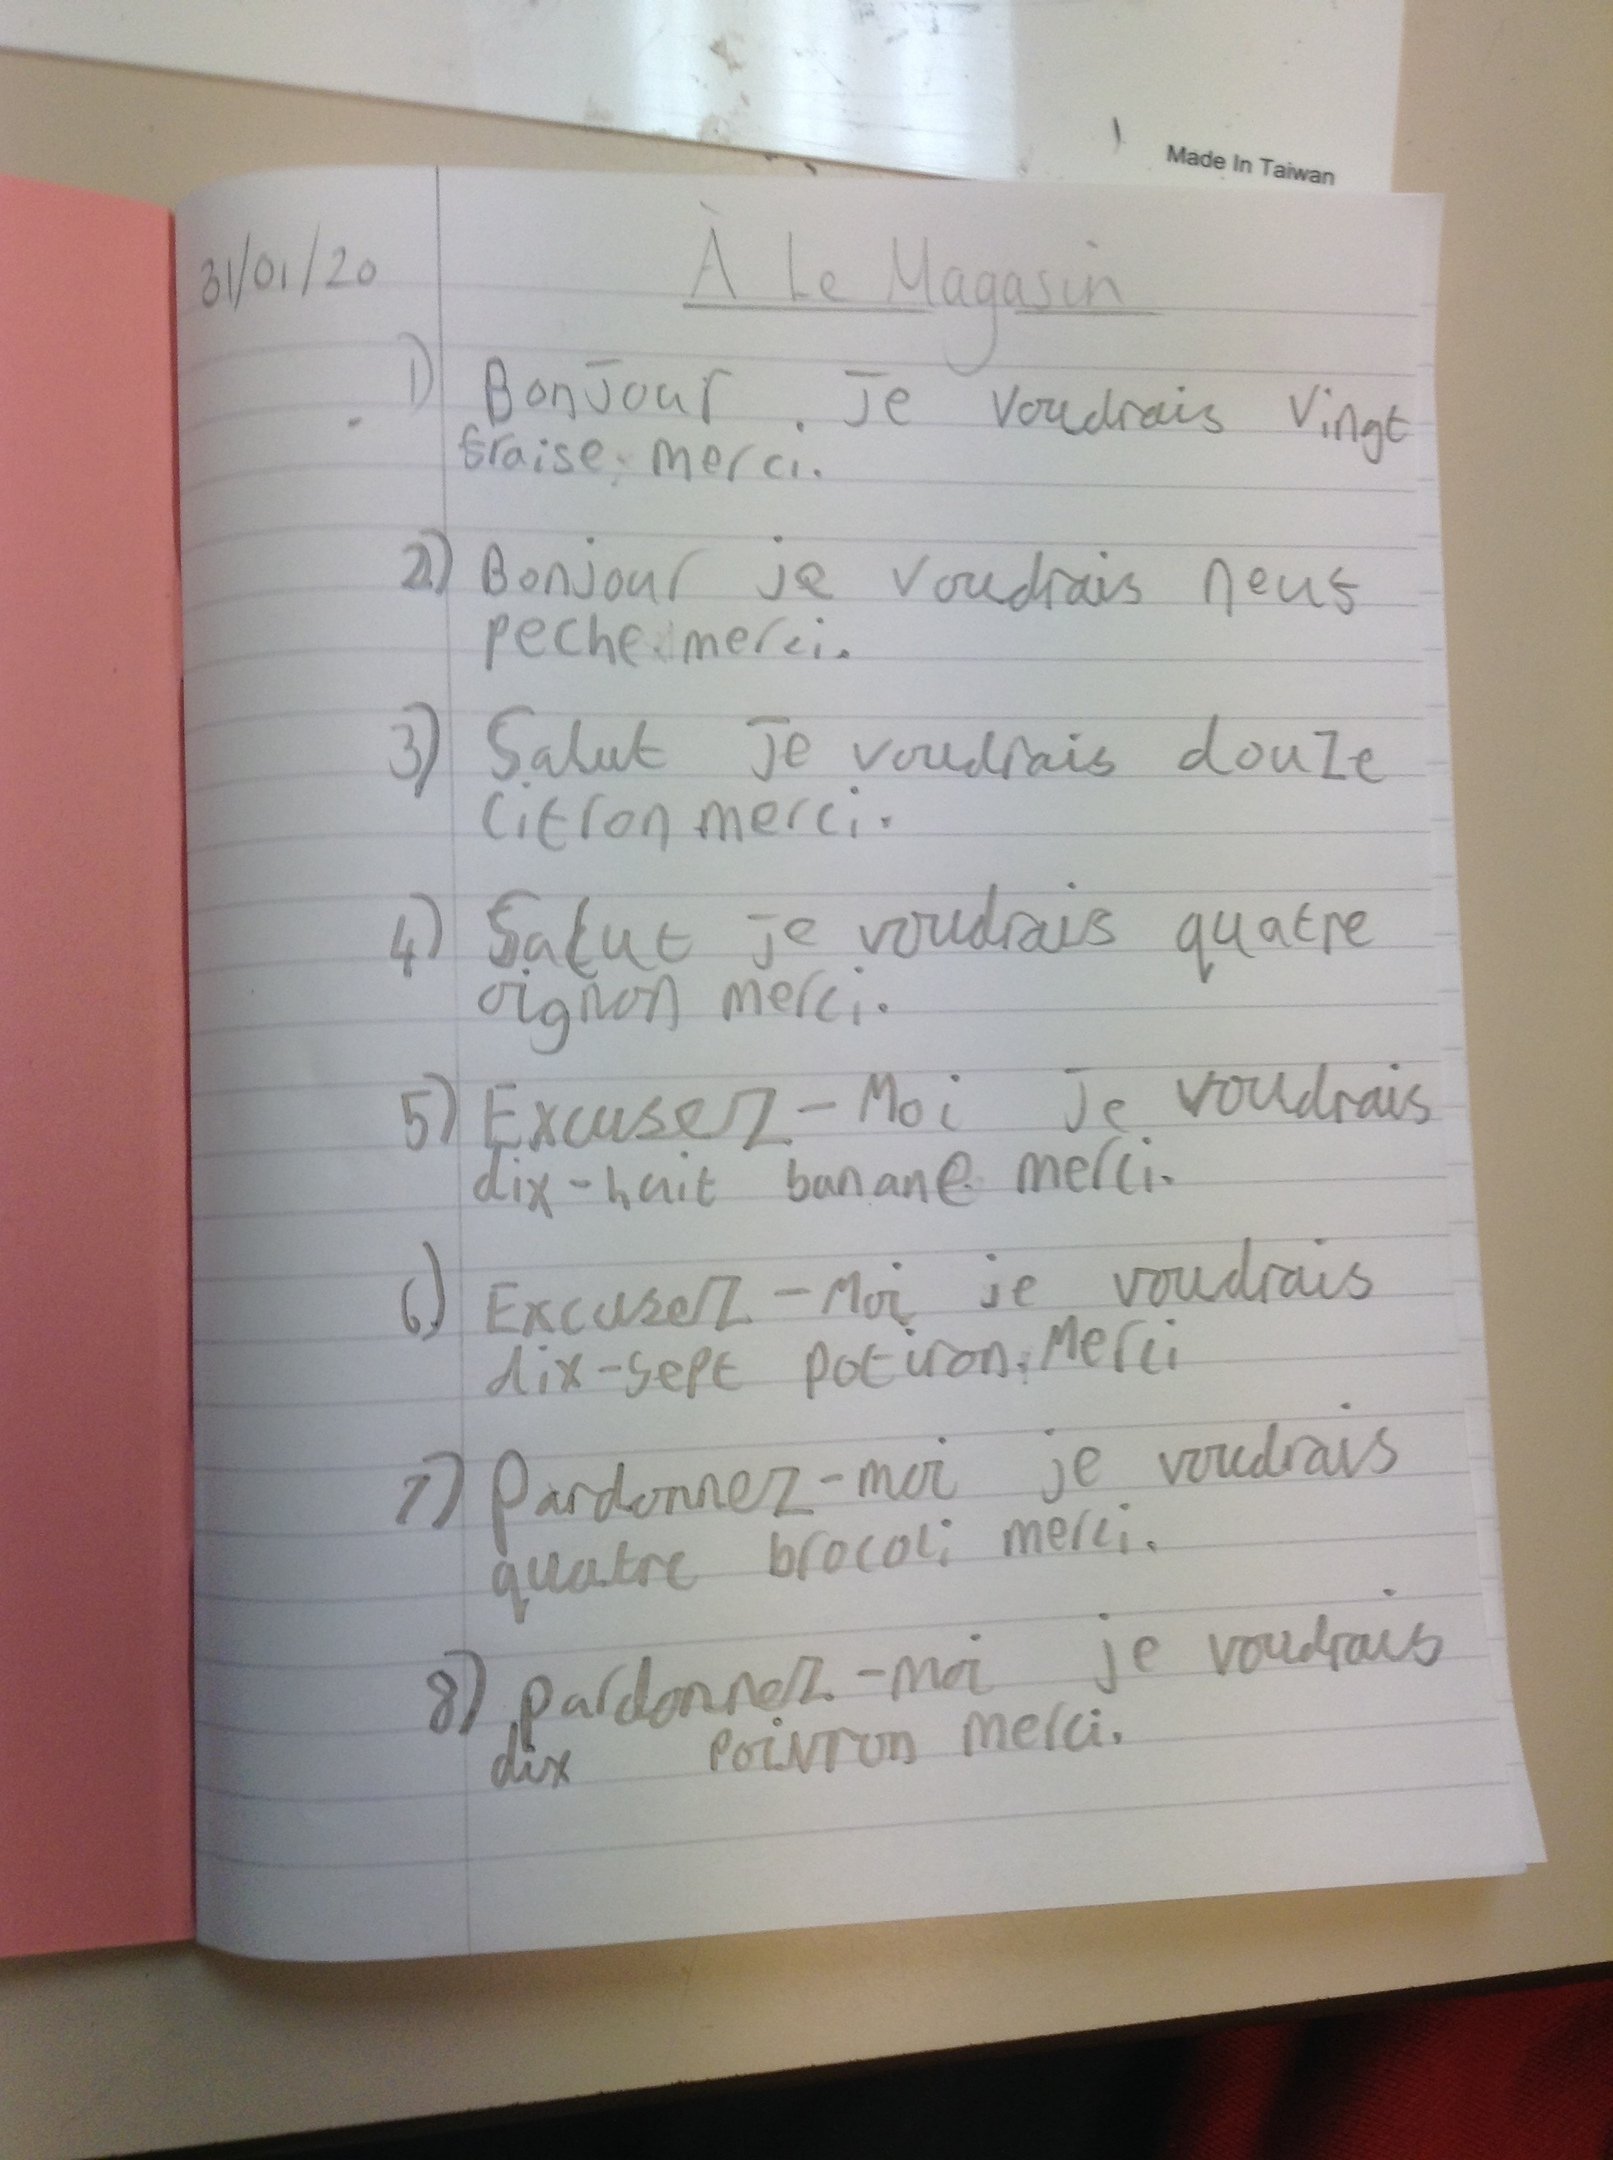 Made In Taiwan
31/01/20
À Le Magasin
1) Bonjour . je voudrais vingt
fraise. merci.
2) Bonjour je voudrais neuf
peche. merci.
3) Salut je voudrais douze
citron merci.
4) Salut je voudrais quatre
oignon merci.
5) Excusez-Moi je voudrais
dix-huit banane merci.
6) Excusez-Moi je voudrais
dix-sept potiron. Merci
7) Pardonnez-moi je voudrais
quatre brocoli merci.
8) pardonnez-moi je voudrais
dix poivron merci.